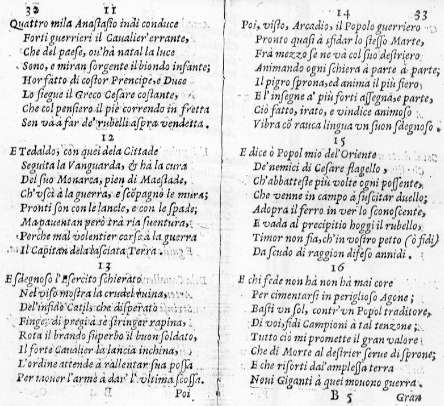 32
11
Quattro mila Anastasio indi conduce
Forti guerrieri il Caualier'errante,
Che del paese, ou'hà natal la luce
Sono, e miran sorgente il biondo infante;
Hor fatto di costor Prencipe, e Duce
Lo siegue il Greco Cesare costante,
Che col pensiero il piè correndo in fretta
Sen và à far de' rubelli aspra vendetta.
12
E Tedaldo, con quei dela Cittade
Seguita la Vanguarda, & hà la cura
Del suo Monarca, pien di Maestade,
Ch'vscì à la guerra, e scōpagnò le mura;
Pronti son con le lancie, e con le spade;
Ma pauentan però trà ria suentura,
Perche mal volentier corse à la guerra
Il Capitan dela lasciata Terra.
13
E sdegnoso l'Esercito schierato
Nel viso mostra la crudel ruina,
Del'infido che disperato
Finge, di pregi à se stringer rapina,
Rota il brando superbo il buon soldato,
Il forte Caualier la lancia inchina,
L'ordine attende à rallentar sua possa
Per mouer l'arme à dar' l'vltima scossa.
Poi
14
33
Poi, visto, Arcadio, il Popolo guerriero
Pronto quasi à sfidar lo stesso Marte,
Frà mezzo se ne và col suo destriero
Animando ogni schiera à parte à parte;
Il pigro sprona, ed anima il più fiero,
E l'insegne a' più forti assegna, e parte,
Ciò fatto, irato, e vindice animoso
Vibra cō rauca lingua vn suon sdegnoso.
15
E dice ò Popol mio del'Oriente
De'nemici di Cesare flagello,
Ch'abbatteste più volte ogni possente,
Che venne in campo à suscitar duello;
Adopra il ferro in ver lo sconoscente,
E vada al precipitio hoggi il rubello,
Timor non fia, ch'in vostro petto (sò fidi)
Da scudo di raggion difeso annidi.
16
E chi fede non hà non hà mai core
Per cimentarsi in periglioso Agone;
Basti vn sol, contr'vn Popol traditore,
Di voi, fidi Campioni à tal tenzone;
Tutto ciò mi promette il gran valore
Che di Morte al destrier serue di sprone;
E che risorti dal'amplessa terra
Noui Giganti à quei mouono guerra.
B 5
Gran